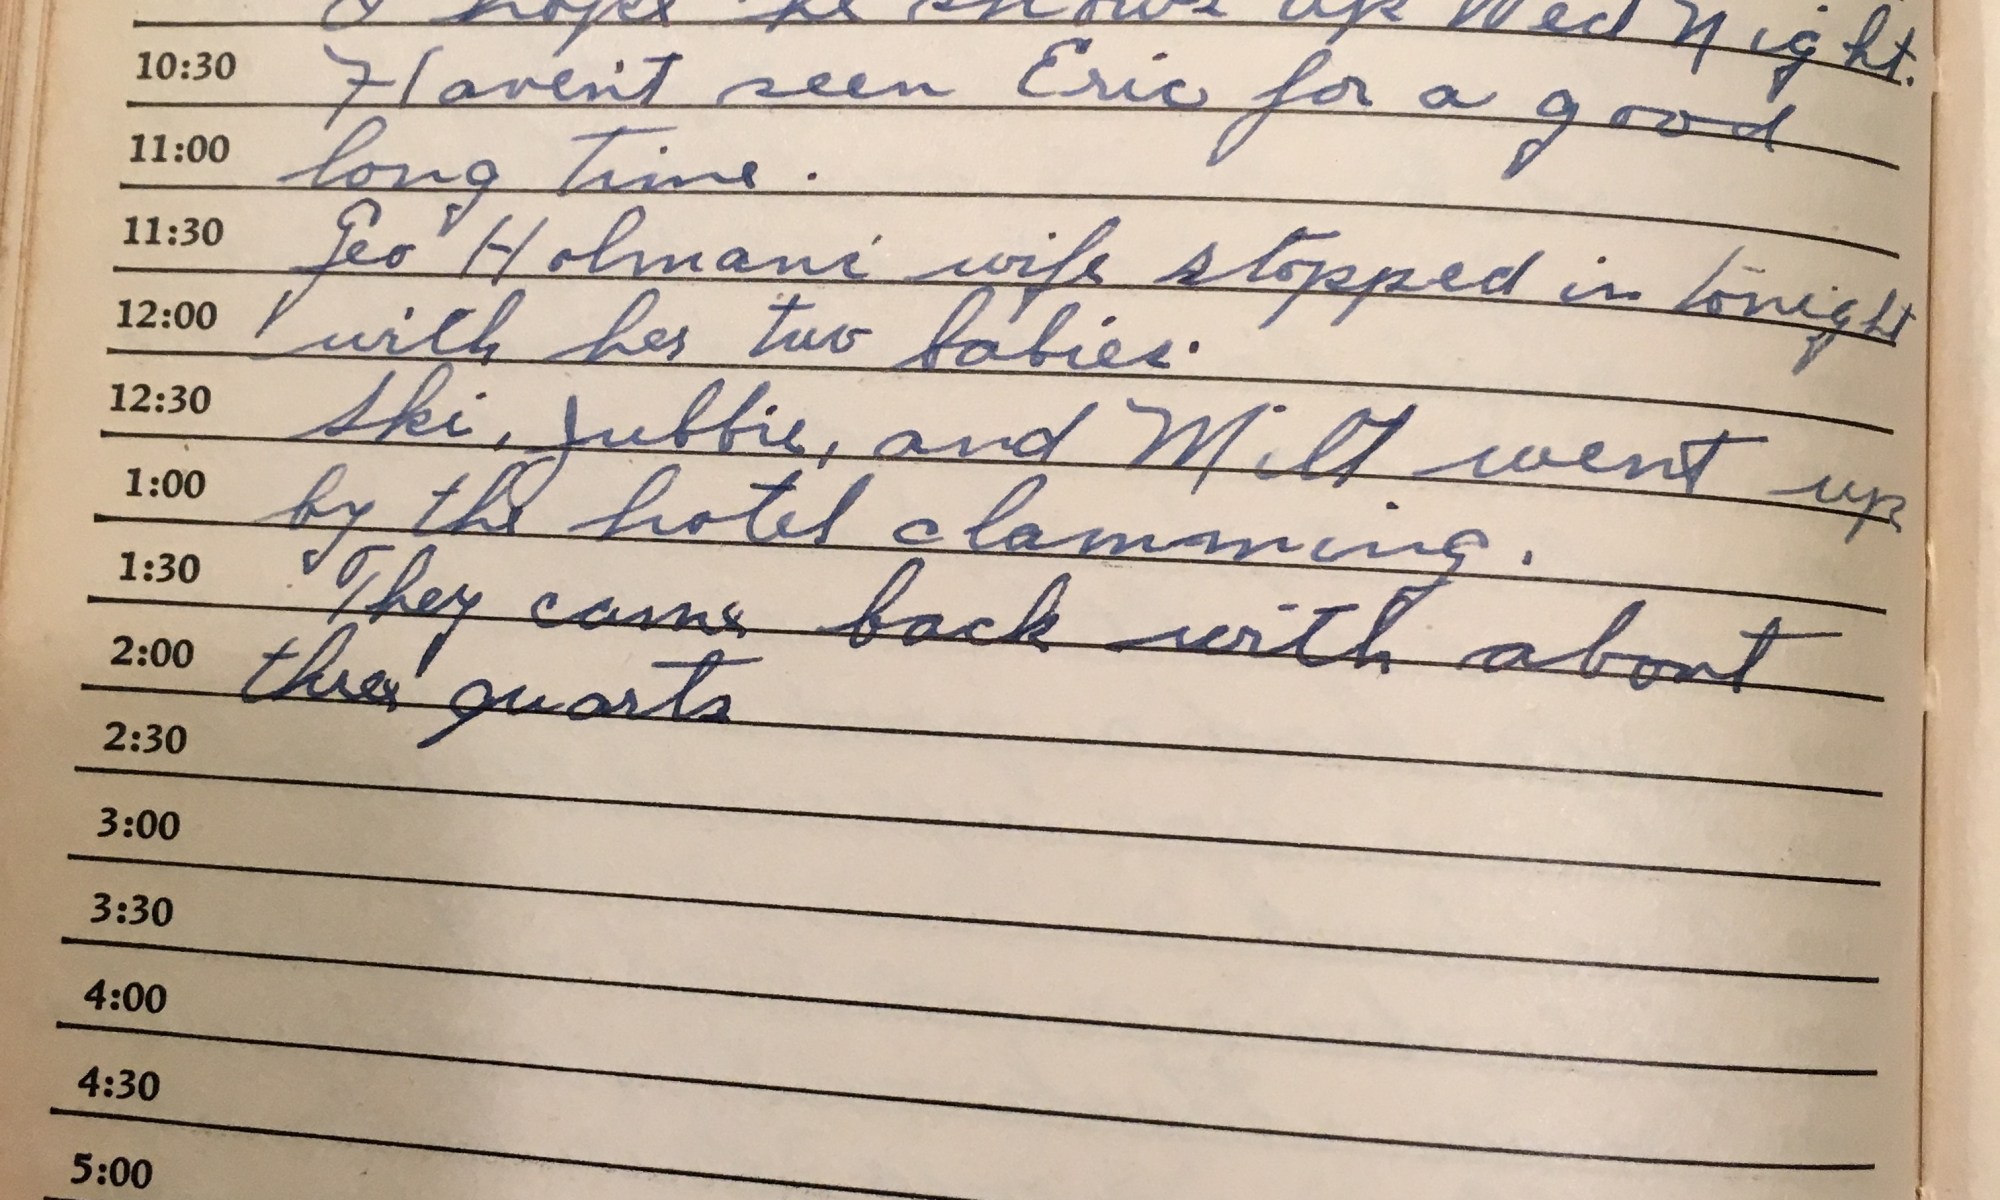 I hope he shows up Wed Night.
10:30 Haven't seen Eric for a good
11:00 long time.
11:30 Geo Holmans wife stopped in tonight
12:00 with her two babies.
12:30 Ski, Jubbie, and Milt went up
1:00 by the hotel clamming.
1:30 They came back with about
2:00 three quarts
2:30
3:00
3:30
4:00
4:30
5:00